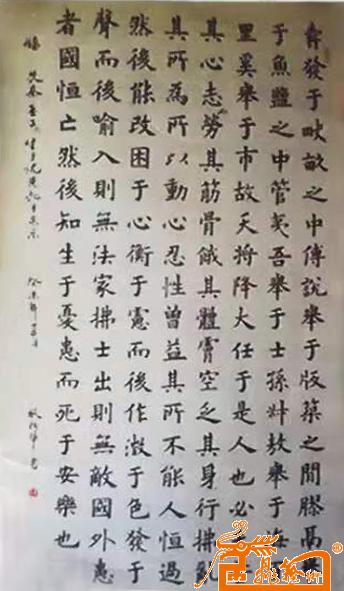 舜發于畎畝之中傅說舉于版築之間膠鬲舉
于魚鹽之中管夷吾舉于士孫叔敖舉于海
里奚舉于市故天將降大任于是人也必
其心志勞其筋骨餓其體膚空乏其身行拂亂
其所為所以動心忍性曾益其所不能人恒過
然後能改困于心衡于慮而後作徵于色發于
聲而後喻入則無法家拂士出則無敵國外患
者國恒亡然後知生于憂患而死于安樂也
錄 先秦孟子
癸未年